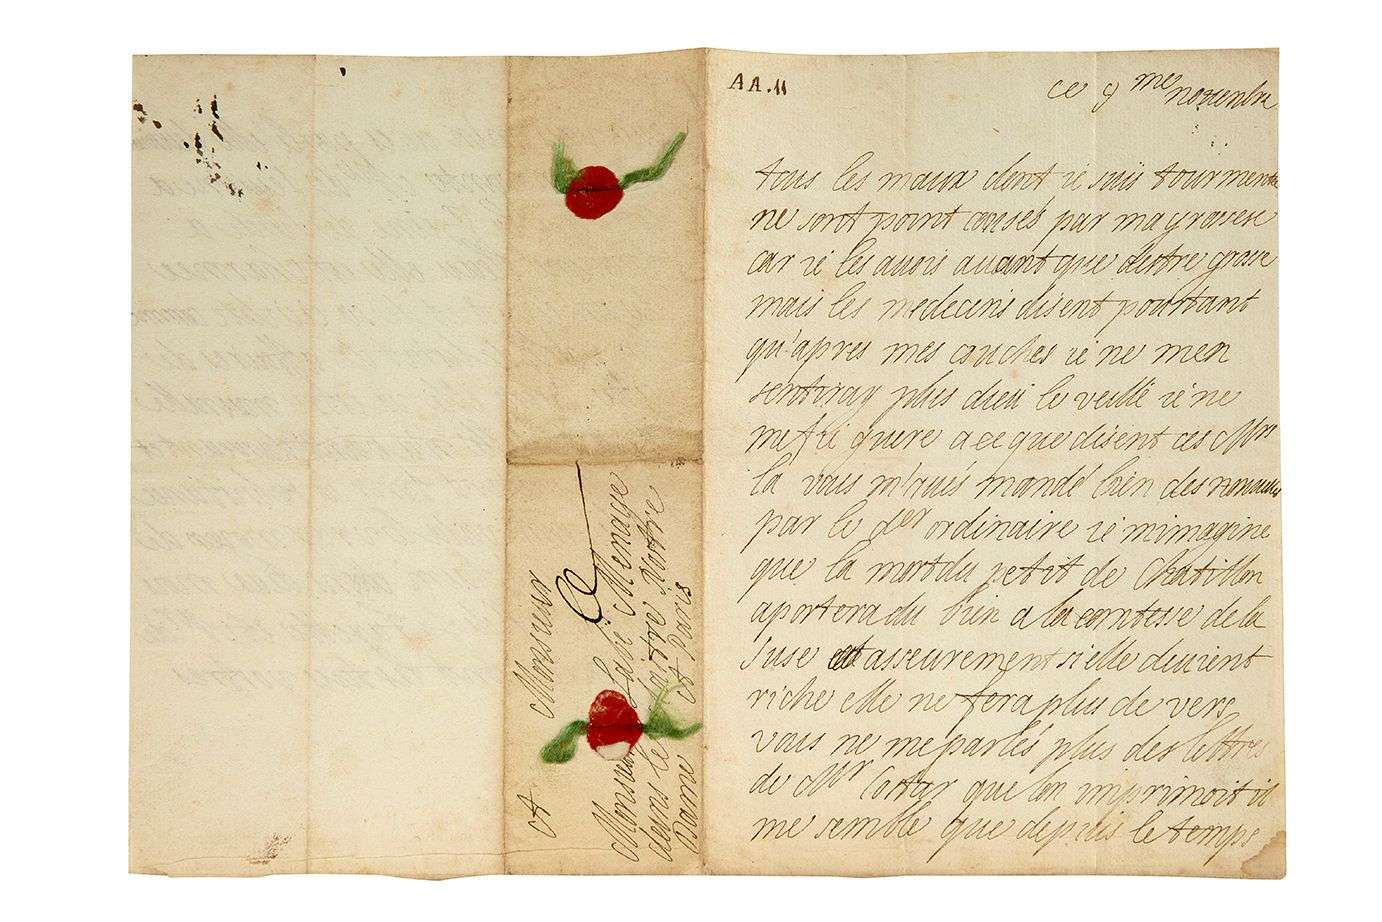 AA.11
ce 9 me novenbre
tous les maux dont ie suis tourmentée
ne sont point causés par ma grossesse
car ie les auois auant que destre grosse
mais les medecins disent pourtant
qu'apres mes couches ie ne men
sentiray plus dieu le veille ie ne
me fie guere a ce que disent ces Mrs
la vous m'aués mandé bien des
par le der ordinaire ie mimagine
que la mort du petit de Chatillon
aportera du bien a la comtesse de la
suse et asseurement si elle deuient
riche elle ne fera plus de vers
vous ne me parlés plus des lettres
de Mr Costar que lon imprimoit il
me semble que depuis le temps
A Monsieur
Monsieur Labé Menage
dens le cloitre Nostre
Dame A Paris